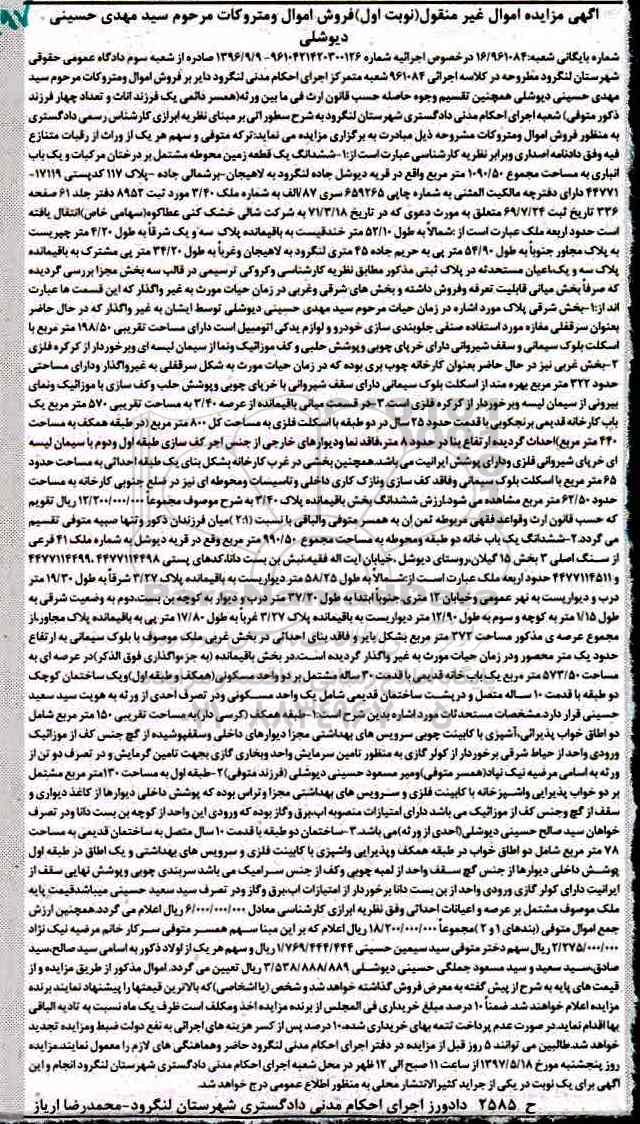 آگهی مزایده اموال غیر منقول(نوبت اول)فروش اموال ومتروکات مرحوم سید مهدی حسینی
دیوشلی
شماره بایگانی شعبه:۱۶/۹۶۱۰۸۴ درخصوص اجرائیه شماره ۹۶۱۰۴۲۱۴۲۰۳۰۰۱۲۶- ۱۳۹۶/۹/۹ صادره از شعبه سوم دادگاه عمومی حقوقی
شهرستان لنگرود مطروحه در کلاسه اجرائی ۹۶۱۰۸۴ شعبه متمرکز اجرای احکام مدنی لنگرود دایر بر فروش اموال ومتروکات مرحوم سید
مهدی حسینی دیوشلی همچنین تقسیم وجوه حاصله حسب قانون ارث فی ما بین ورثه(همسر دائمی یک فرزند اناث و تعداد چهار فرزند
ذکور متوفی) شعبه اجرای احکام مدنی دادگستری شهرستان لنگرود به شرح سطور اتی بر مبنای نظریه ابرازی کارشناس رسمی دادگستری
به منظور فروش اموال ومتروکات مشروحه ذیل مبادرت به برگزاری مزایده می نماید:ترکه متوفی و سهم هر یک از وراث از رقبات متنازع
فیه وفق دادنامه اصداری وبرابر نظریه کارشناسی عبارت است از:۱-ششدانگ یک قطعه زمین محوطه مشتمل بر درختان مرکبات و یک باب
انباری به مساحت مجموع ۱۰۹۰/۵۰ متر مربع واقع در قریه دیوشل جاده لنگرود به لاهیجان-برشمالی جاده -پلاک ۱۱۷ کدپستی ۱۷۱۱۹-
۴۴۷۷۱ دارای دفترچه مالکیت المثنی به شماره چاپی ۶۵۹۲۶۵ سری ۸۷/الف به شماره ملک ۳/۴۰ مورد ثبت ۸۹۵۳ دفتر جلد ۶۱ صفحه
۳۳۶ تاریخ ثبت ۶۹/۷/۲۴ متعلق به مورث دعوی که در تاریخ ۷۱/۳/۱۸ به شرکت شالی خشک کنی عطاکوه(سهامی خاص)انتقال یافته
است حدود اربعه ملک عبارت است از :شمالاً به طول ۵۲/۱۰ متر خندقیست به باقیمانده پلاک سه و یک شرقاً به طول ۴/۲۰ متر چپریست
به پلاک مجاور جنوباً به طول ۵۴/۹۰ متر پی به حریم جاده ۴۵ متری لنگرود به لاهیجان وغرباً به طول ۳۴/۲۰ متر پی مشترک به باقیمانده
پلاک سه و یک،اعیان مستحدثه در پلاک ثبتی مذکور مطابق نظریه کارشناسی وکروکی ترسیمی در قالب سه بخش مجزا بررسی گردیده
که صرفاً بخش میانی قابلیت تعرفه وفروش داشته و بخش های شرقی وغربی در زمان حیات مورث به غیر واگذار که این قسمت ها عبارت
اند از:۱-بخش شرقی پلاک مورد اشاره در زمان حیات مرحوم سید مهدی حسینی دیوشلی توسط ایشان به غیر واگذار که در حال حاضر
بعنوان سرقفلی مغازه مورد استفاده صنفی جلوبندی سازی خودرو و لوازم یدکی اتومبیل است دارای مساحت تقریبی ۱۹۸/۵۰ متر مربع با
اسکلت بلوک سیمانی و سقف شیروانی دارای خرپای چوبی وپوشش حلبی و کف موزائیک ونما از سیمان لیسه ای وبرخوردار از کرکره فلزی
۲-بخش غربی نیز در حال حاضر بعنوان کارخانه چوب بری بوده که در زمان حیات مورث به شکل سرقفلی به غیرواگذار ودارای مساحتی
حدود ۳۲۲ متر مربع بهره مند از اسکلت بلوک سیمانی دارای سقف شیروانی با خرپای چوبی وپوشش حلب وکف سازی با موزائیک ونمای
بیرونی از سیمان لیسه وبرخوردار از کرکره فلزی است.۳-در قسمت میانی باقیمانده از عرصه ۳/۴۰ به مساحت تقریبی ۵۷۰ متر مربع یک
باب کارخانه قدیمی برنجکوبی با قدمت حدود ۲۵ سال در دو طبقه با اسکلت فلزی به مساحت کل ۸۰۰ متر مربع (در طبقه همکف به مساحت
۴۴۰ متر مربع)احداث گردیده ارتفاع بنا در حدود ۸ متر،فاقد نما ودیوارهای خارجی از جنس اجر کف سازی طبقه اول ودوم با سیمان لیسه
ای خرپای شیروانی فلزی ودارای پوشش ایرانیت می باشد.همچنین بخشی در غرب کارخانه بشکل بنای یک طبقه احداثی به مساحت حدود
۶۵ متر مربع با اسکلت بلوک سیمانی وفاقد کف سازی ونازک کاری داخلی وتاسیسات ومحوطه ای نیز در ضلع جنوبی کارخانه به مساحت
حدود ۶۲/۵۰ متر مربع مشاهده می شود.ارزش ششدانگ بخش باقیمانده پلاک ۳/۴۰ به شرح موصوف مجموعاً ۱۲/۲۰۰/۰۰۰/۰۰۰ ریال تقویم
که حسب قانون ارث وقواعد فقهی مربوطه ثمن ان به همسر متوفی والباقی با نسبت (۲:۱ )میان فرزندان ذکور وتنها صبیه متوفی تقسیم
می گردد.۲-ششدانگ یک باب خانه دو طبقه ومحوطه به مساحت مجموع ۹۹۰/۵۰ متر مربع وقع در قریه دیوشل به شماره ملک ۴۱ فرعی
از سنگ اصلی ۳ بخش ۱۵ گیلان،روستای دیوشل ،خیابان ایت اله فقیه،نبش بن بست دانا،کدهای پستی ۴۴۷۷۱۱۴۴۹۸ ،۴۴۷۷۱۱۴۴۹۹
و ۴۴۷۷۱۱۴۵۱۱ حدود اربعه ملک عبارت است از:شمالاً به طول ۵۸/۲۵ متر دیواریست به باقیمانده پلاک ۳/۲۷ شرقاً به طول ۱۹/۳۰ متر
درب و دیواریست به نهر عمومی وخیابان ۱۲ متری جنوباً ابتدا به طول ۳۷/۲۰ متر درب و دیوار به کوچه بن بست،دوم به وضعیت شرقی به
طول ۱/۱۵ متر به کوچه و سوم به طول ۱۲/۹۰ متر دیواریست به باقیمانده پلاک ۳/۲۷ غرباً به طول ۱۷/۸۰ متر پی به باقیمانده پلاک مجاور،از
مجموع عرصه ی مذکور مساحت ۳۷۲ متر مربع بشکل بایر و فاقد بنای احداثی در بخش غربی ملک موصوف با بلوک سیمانی به ارتفاع
حدود یک متر محصور ودر زمان حیات مورث به غیر واگذار گردیده است.در بخش باقیمانده (به جز،واگذاری فوق الذکر)در عرصه ای به
مساحت ۵۷۳/۵۰ متر مربع یک باب خانه قدیمی با قدمت ۳۰ ساله مشتمل بر دو واحد سکونی(همکف و طبقه اول)ویک ساختمان کوچک
دو طبقه با قدمت ۱۰ ساله متصل و در پشت ساختمان قدیمی شامل یک واحد مسکونی ودر تصرف احدی از ورثه به هویت سید سعید
حسینی قرار دارد.مشخصات مستحدثات مورد اشاره بدین شرح است:۱-طبقه همکف (کرسی دار)به مساحت تقریبی ۱۵۰ متر مربع شامل
دو اطاق خواب پذیرائی،آشپزی با کابینت چوبی سرویس های بهداشتی مجزا دیوارهای داخلی وسقفپوشیده از گچ جنس کف از موزائیک
ورودی واحد از حیاط شرقی برخوردار از کولر گازی به منظور تامین سرمایش واحد وبخاری گازی بجهت تامین گرمایش و در تصرف دو تن از
ورثه به اسامی مرضیه نیک نیاد(همسر متوفی)ومیر مسعود حسینی دیوشلی (فرزند متوفی)۲-طبقه اول به مساحت ۱۳۰متر مربع مشتمل
بر دو خواب پذیرایی واشپزخانه با کابینت فلزی و سرویس های بهداشتی مجزا و تراس بوده که پوشش داخلی دیوارها از کاغذ دیواری و
سقف از گچ وجنس کف از موزائیک می باشد دارای امتیازات منصوبه اب،برق وگاز بوده که ورودی این واحد از کوچه بن بست دانا ودر تصرف
خواهان سید صالح حسینی دیوشلی(احدی از ورثه)می باشد.۳-ساختمان دو طبقه با قدمت ۱۰ سال متصل به ساختمان قدیمی به مساحت
۷۸ متر مربع شامل دو اطاق خواب در طبقه همکف وپذیرایی واشپزی با کابینت فلزی و سرویس های بهداشتی و یک اطاق در طبقه اول
پوشش داخلی دیوارها از جنس گچ سقف واحد از لمبه چوبی وکف از جنس سرامیک می باشد سربندی چوبی وپوشش نهایی سقف از
ایرانیت دارای کولر گازی ورودی واحد از بن بست دانا برخوردار از امتیازات اب،برق وگاز ودر تصرف سید سعید حسینی میباشدقیمت پایه
ملک موصوف مشتمل بر عرصه و اعیانات احداثی وفق نظریه ابرازی کارشناسی معادل ۶/۰۰۰/۰۰۰/۰۰۰ ریال اعلام می گردد.همچنین ارزش
جمع اموال متوفی (بندهای ۱ و ۲ )مجموعاً ۱۸/۲۰۰/۰۰۰/۰۰۰ ریال اعلام که بر این مبنا سهم همسر متوفی سرکار خانم مرضیه نیک نژاد
۲/۲۷۵/۰۰۰/۰۰۰ ریال سهم دختر متوفی سید سیمین حسینی ۱/۷۶۹/۴۴۴/۴۴۴ ریال و سهم هر یک از اولاد ذکور به اسامی سید صالح،سید
صادق،سید سعید و سید مسعود جملگی حسینی دیوشلی ۳/۵۳۸/۸۸۸/۸۸۹ ریال تعیین می گردد. اموال مذکور از طریق مزایده و از
قیمت های پایه به شرح از پیش گفته به معرض فروش گذاشته خواهد شد و شخص (یا اشخاصی)که بالاترین قیمتها را پیشنهاد نمایند برنده
مزایده اعلام خواهند شد. ضمناً ۱۰ درصد مبلغ خریداری فی المجلس از برنده مزایده اخذ ومکلف است ظرف یک ماه نسبت به تادیه الباقی
بها اقدام نماید.در صورت عدم پرداخت تتمه بهای خریداری شده،۱۰ درصد پس از کسر هزینه های اجرائی به نفع دولت ضبط ومزایده تجدید
خواهد شد.طالبین می توانند ۵ روز قبل از مزایده در دفتر اجرای احکام مدنی لنگرود حاضر وهماهنگی های لازم را معمول نمایند.مزایده
روز پنجشنبه مورخ ۱۳۹۷/۵/۱۸ از ساعت ۱۱ صبح الی ۱۲ ظهر در محل شعبه اجرای احکام مدنی دادگستری شهرستان لنگرود انجام و این
آگهی برای یک نوبت در یکی از جراید کثیرالانتشار محلی به منظور اطلاع عمومی درج خواهد شد.
ح ۲۵۸۵ دادورز اجرای احکام مدنی دادگستری شهرستان لنگرود-محمدرضا ارباز